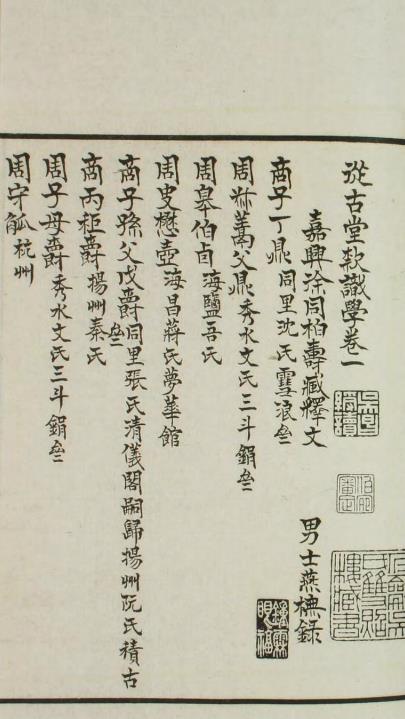 從古堂款識學卷一
嘉興徐同柏壽臧釋文 男士燕橅錄
商子丁鼎 同里沈氏雪浪叁
周 父鼎 秀水文氏三斗鋗叁
周皋伯卣 海鹽吾氏
周史懋壺 海昌蔣氏夢華館
商子孫父戊爵 同里張氏清儀閣嗣歸揚州阮氏積古叁
商丙秬爵 揚州秦氏
周子母爵 秀水文氏三斗鋗叁
周守觚 杭州
眼福